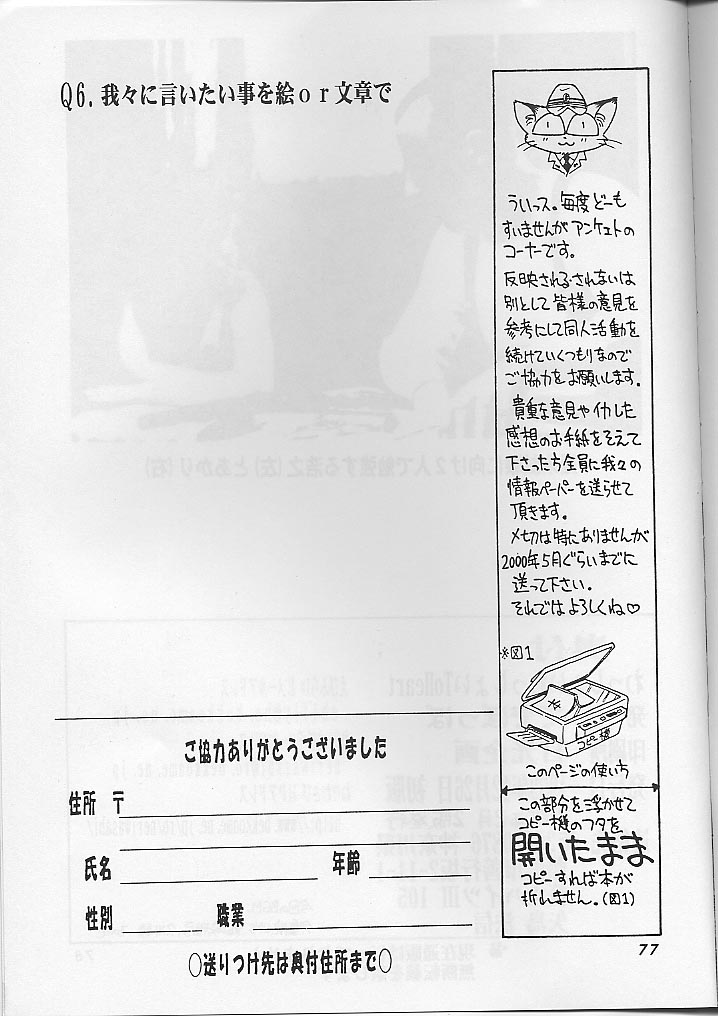 Q6. 我々に言いたい事を絵or文章で
ういっス。毎度どーも
すいませんがアンケートの
コーナーです。
反映される・されないは
別として皆様の意見を
参考にして同人活動を
続けていくつもりなので
ご協力をお願いします。
貴重な意見やイカした
感想のお手紙をそえて
下さった方全員に我々の
情報ペーパーを送らせて
頂きます。
〆切は特にありませんが
2000年5月ぐらいまでに
送って下さい。
それではよろしくね♡
※図1
コピー機
このページの使い方
この部分を浮かせて
コピー機のフタを
開いたまま
コピーすれば本が
折れません。(図1)
ご協力ありがとうございました
住所 〒
氏名 年齢
性別 職業
○送りつけ先は奥付住所まで○
77